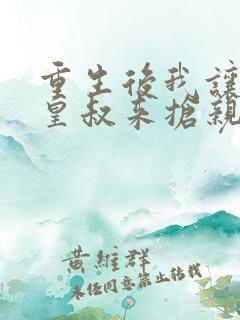 重生後我讓
皇叔來搶親
黃維群
未經同意禁止轉載